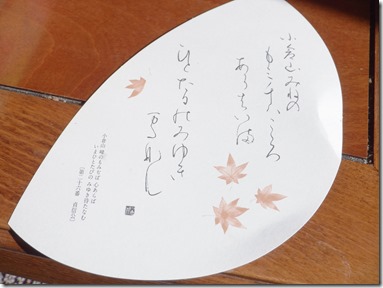 小倉山みねの
もみちハこころ
あらはいま
ひとたひのみゆき
またなむ
小倉山 峰のもみぢば 心あらば
いまひとたびの みゆき待たなむ
(第二十六番 貞信公)